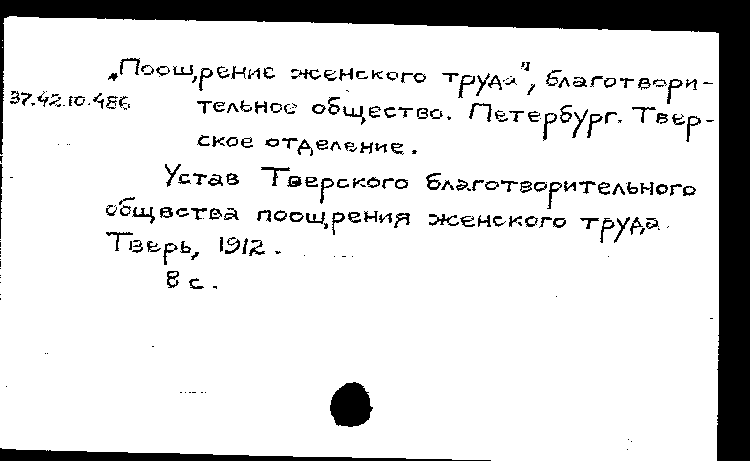 „Поощрение женского труда", благотвори-
37.42.10.486 тельное общество. Петербург. Твер-
ское отделение.
Устав Тверского благотворительного
общества поощрения женского труда.
Тверь, 1912.
8 с.